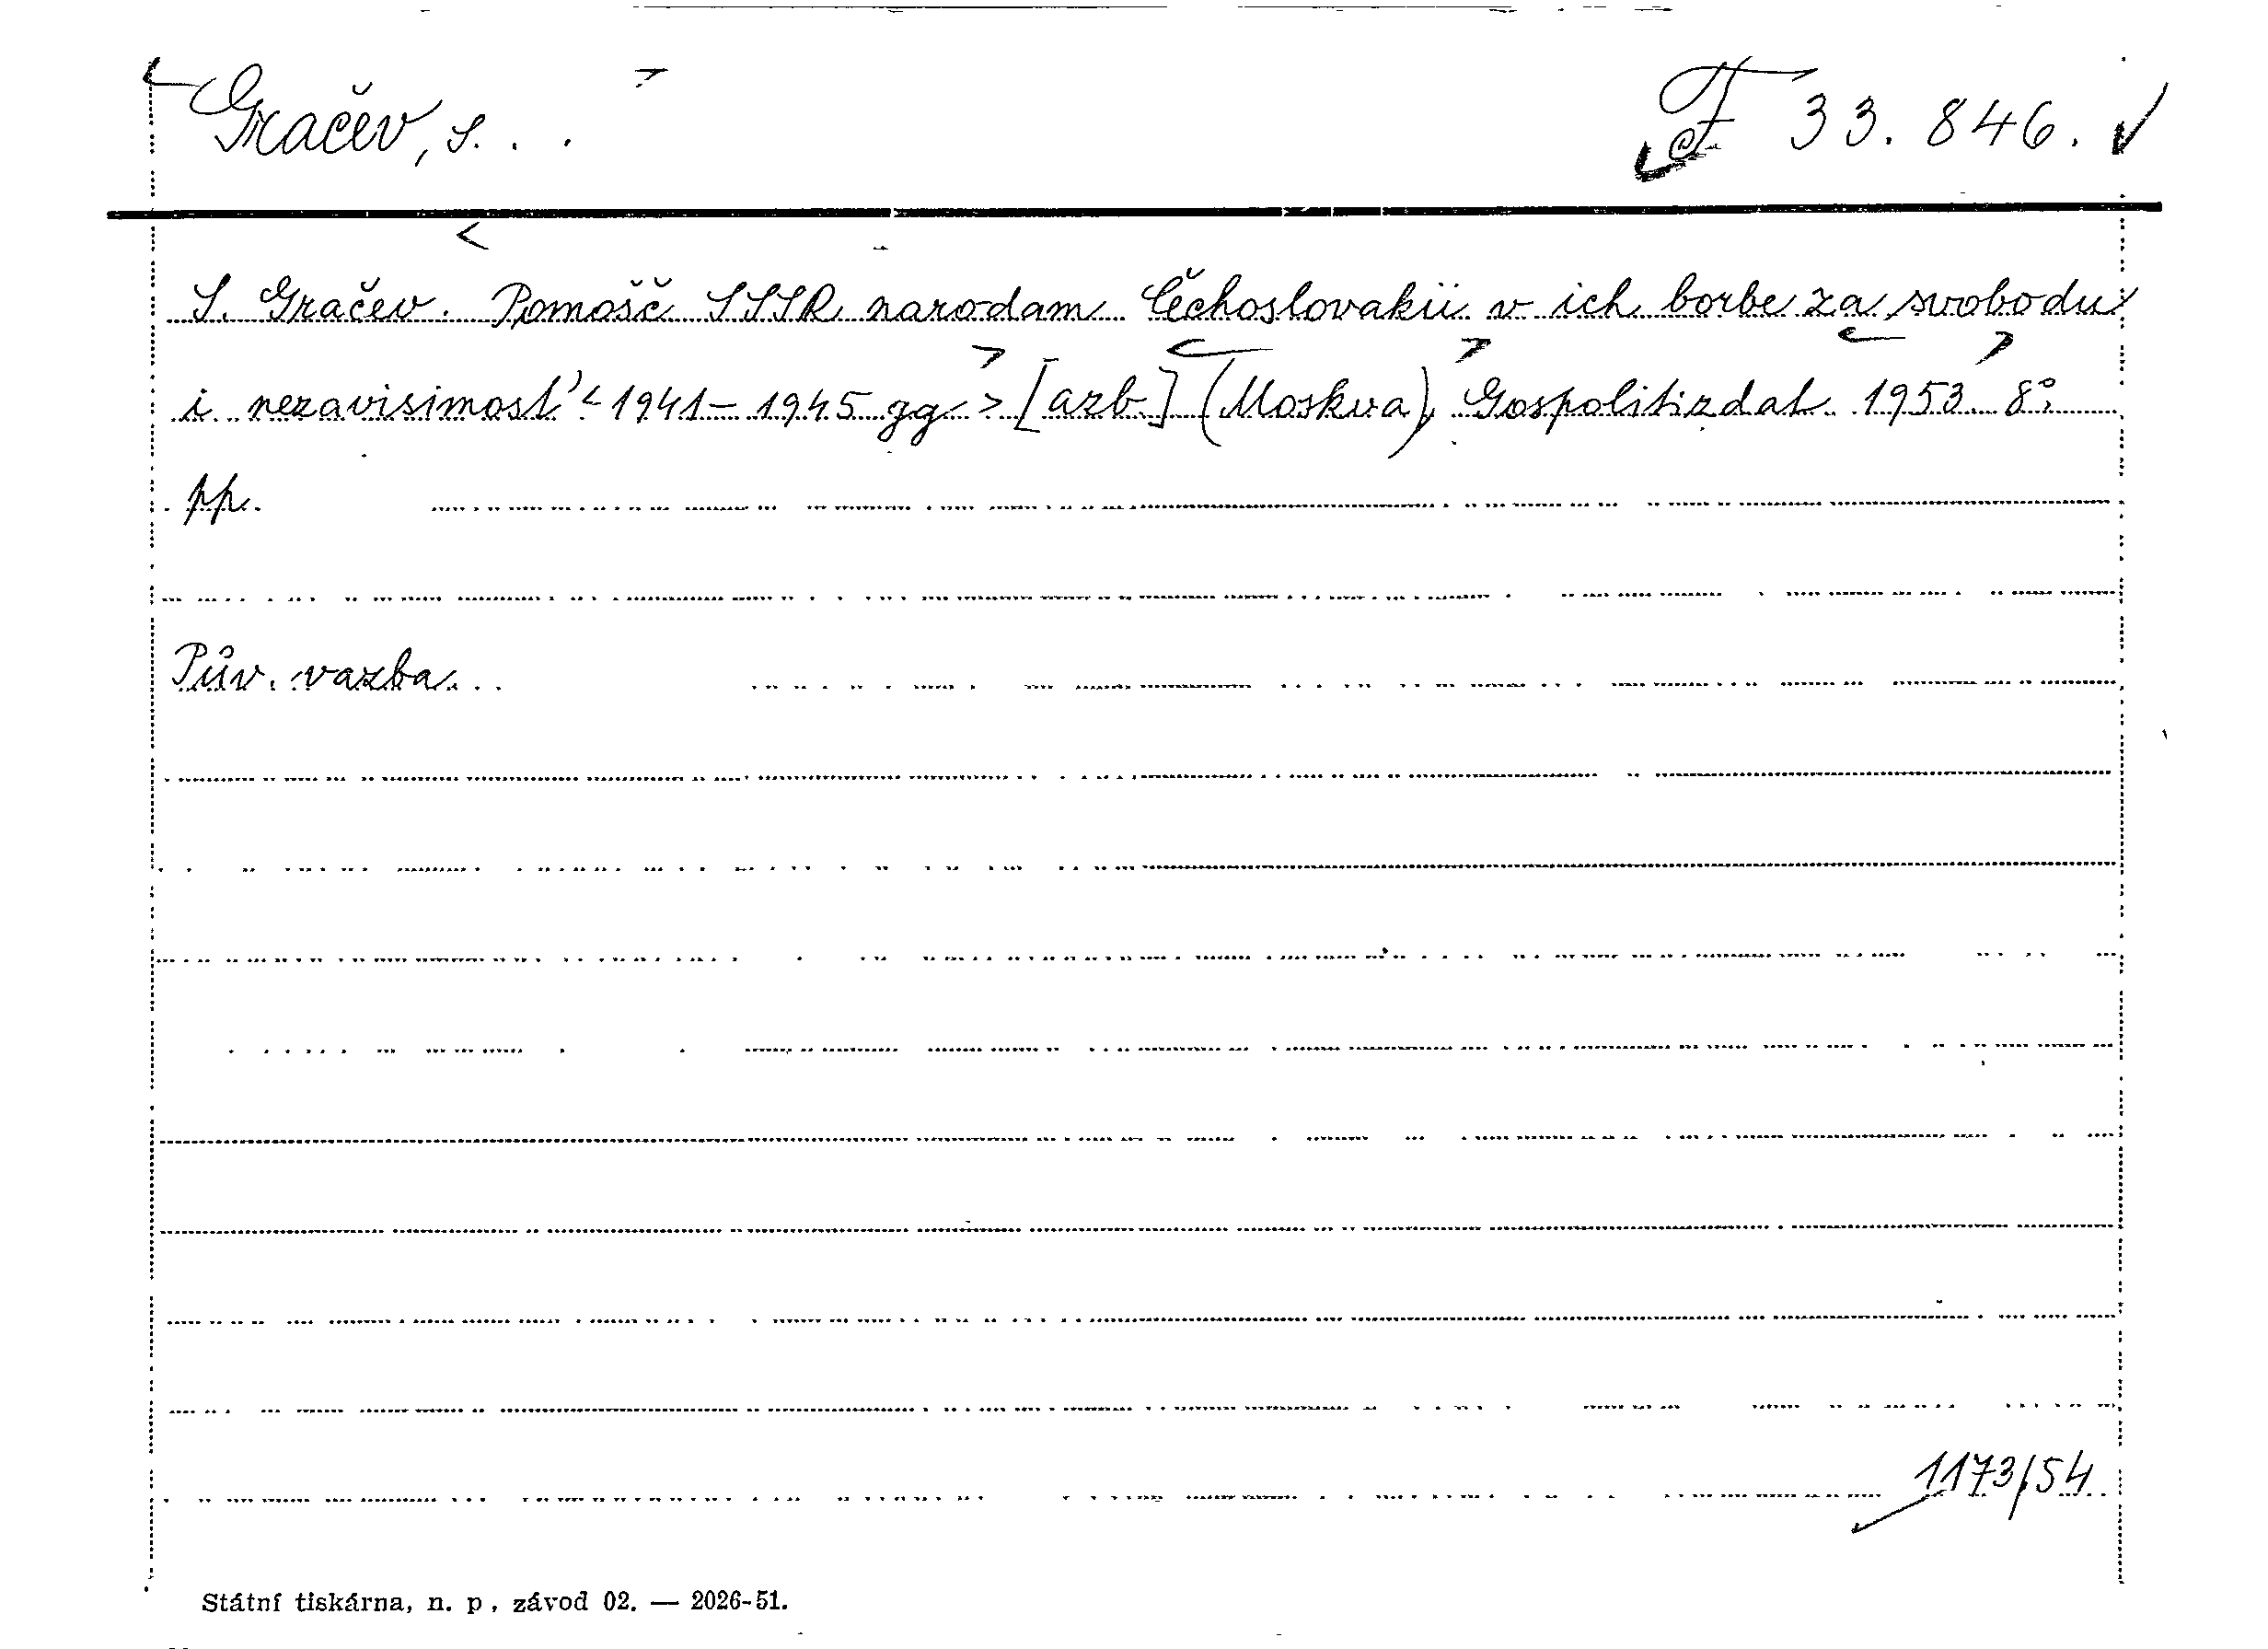 Gračev, S. . . F 33.846.
S. Gračev. Pomošč SSSR narodam Čechoslovakii v ich borbe za svobodu
i nezavisimost' <1941-1945 gg> [azb.] (Moskva), Gospolitizdat 1953 8°.
pp.
Pův. vazba.
1173/54
Státní tiskárna, n. p., závod 02. — 2026-51.